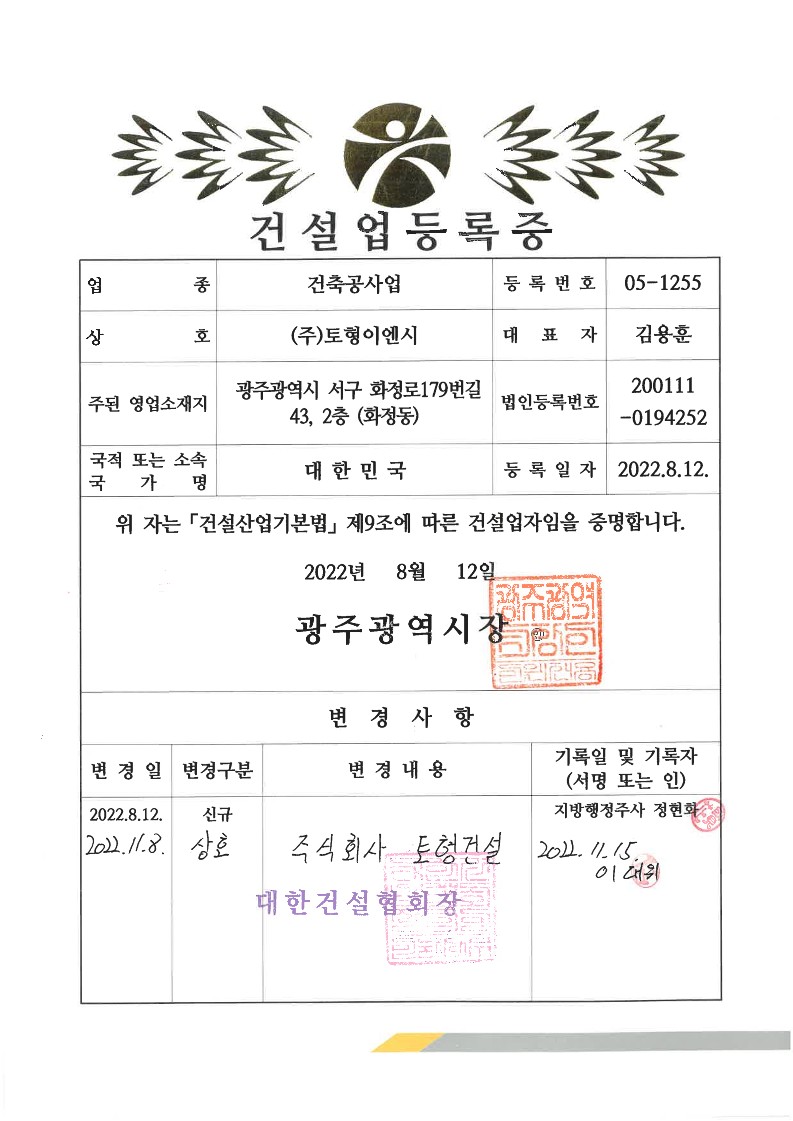 건설업등록증
업 종 건축공사업 등록번호 05-1255
상 호 (주)토형이엔시 대 표 자 김용훈
주된 영업소재지 광주광역시 서구 화정로179번길 43, 2층 (화정동) 법인등록번호 200111 -0194252
국적 또는 소속 국 가 명 대한민국 등록일자 2022.8.12.
위 자는 「건설산업기본법」 제9조에 따른 건설업자임을 증명합니다.
2022년 8월 12일
광주광역시장 인
변 경 사 항
변경일 변경구분 변경내용 기록일 및 기록자 (서명 또는 인)
2022.8.12. 신규 지방행정주사 정현화
2022.11.8. 상호 주식회사 토형건설 2022.11.15.
이대위
대한건설협회장